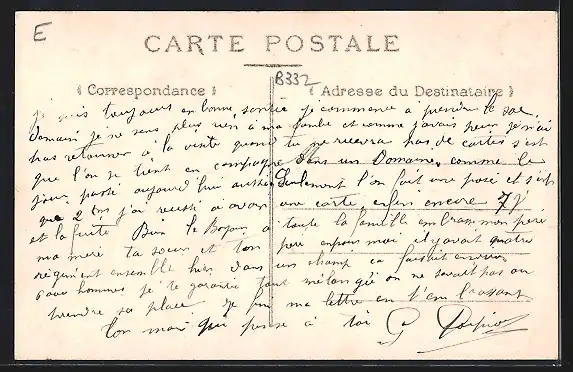 E
CARTE POSTALE
B332
Correspondance
Adresse du Destinataire
je suis toujours en bonne santée je commence a prendre le sac
demain je ne sens plus rien a ma jambe et comme j'avais peur je n'ai
pas retourner a la visite quand tu ne recevra pas de cartes s'est
que l'on se tient en campagne dans un Domaine, comme le
jour passé aujourd'hui aussi Seulement l'on fait une pose et s'est
que 2 j'ai reussi a avoir une carte enfin encore 77
et la fuite Bien le Bonjour a toute la famille embrasse mon père
ma mere ta soeur et ton père enfin moi il y avait quatre
régiment ensemble hier dans un champ ca faisait environ
6000 hommes je te garantie tout mélangé on ne savait pas ou
prendre sa place Je fini ma lettre en t'embrassant
Ton mari qui pense à toi G